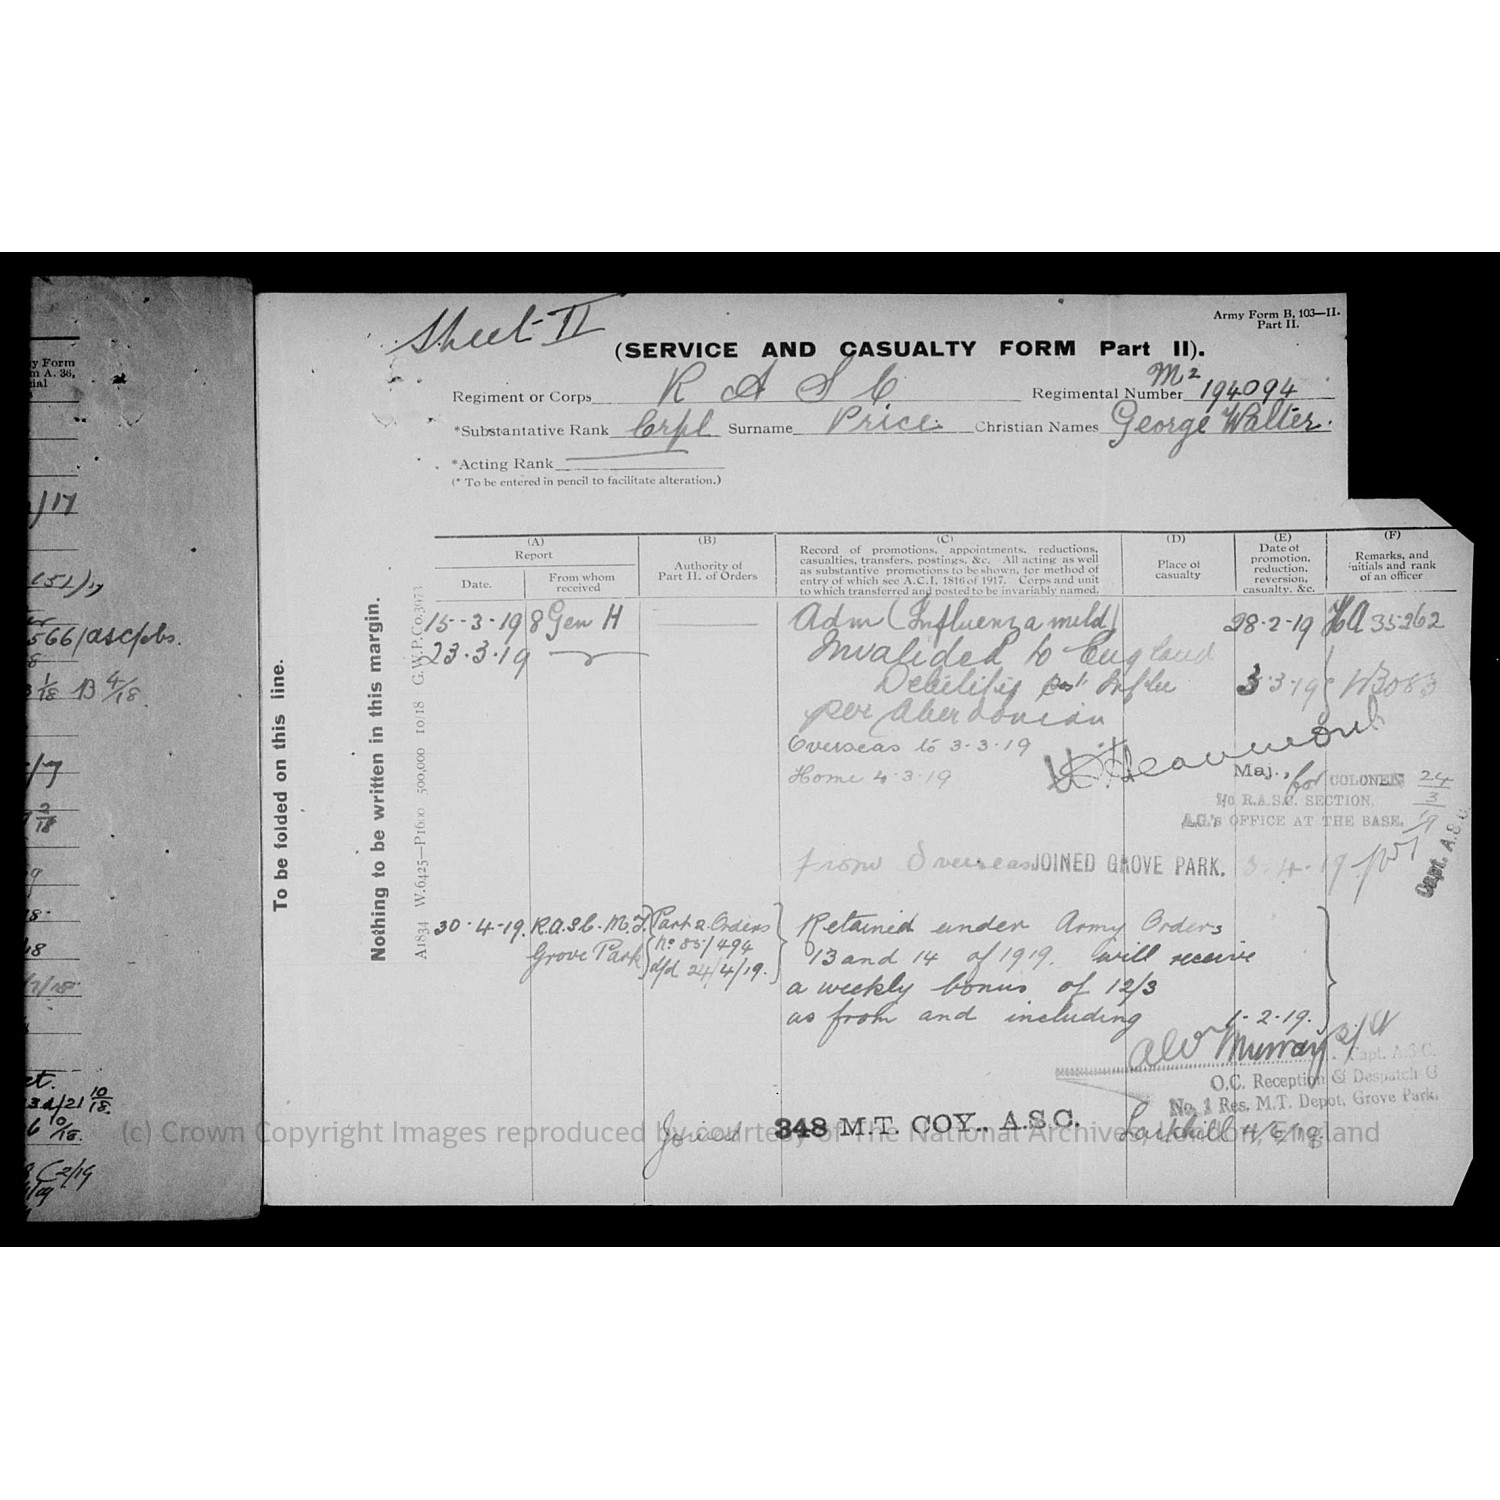 Sheet II
Army Form B. 103—II.
Part II.
(SERVICE AND CASUALTY FORM Part II).
Regiment or Corps R A S C Regimental Number M2 194094
*Substantive Rank Crpl Surname Price Christian Names George Walter.
*Acting Rank
(* To be entered in pencil to facilitate alteration.)
To be folded on this line.
Nothing to be written in this margin.
A1834 W.6425—P1600 500,000 10/18 G.W.P.Co.3973
(A)
Report
Date.
From whom
received
(B)
Authority of
Part II. of Orders
(C)
Record of promotions, appointments, reductions,
casualties, transfers, postings, &c. All acting as well
as substantive promotions to be shown, for method of
entry of which see A.C.I. 1816 of 1917. Corps and unit
to which transferred and posted to be invariably named.
(D)
Place of
casualty
(E)
Date of
promotion,
reduction,
reversion,
casualty, &c.
(F)
Remarks, and
initials and rank
of an officer
15-3-19 8 Gen H Adm (Influenza mild) 28-2-19 35262
23.3.19 Invalided to England
Debility post Influ 3.3.19 W3083
per Aberdonian
Overseas to 3-3-19
Home 4.3.19
Maj., for COLONEL 24/3/19
i/c R.A.S.C. SECTION,
A.G.'s OFFICE AT THE BASE.
from Overseas JOINED GROVE PARK. 3-4-19
Capt. A.S.C.
30-4-19. R.A.S.C. M.T. Part 2 Orders Retained under Army Orders
Grove Park No 85/494 13 and 14 of 1919. will receive
d/d 24/4/19. a weekly bonus of 12/3
as from and including 1-2-19.
Murray
Capt. A.S.C.
O.C. Reception & Despatch
No. 1 Res. M.T. Depot, Grove Park.
Joined 348 M.T. COY., A.S.C. Larkhill 4/6/19.
(c) Crown Copyright Images reproduced by courtesy of The National Archives, London, England
y Form
m A. 36,
ial
/17
566/asc/pbs.